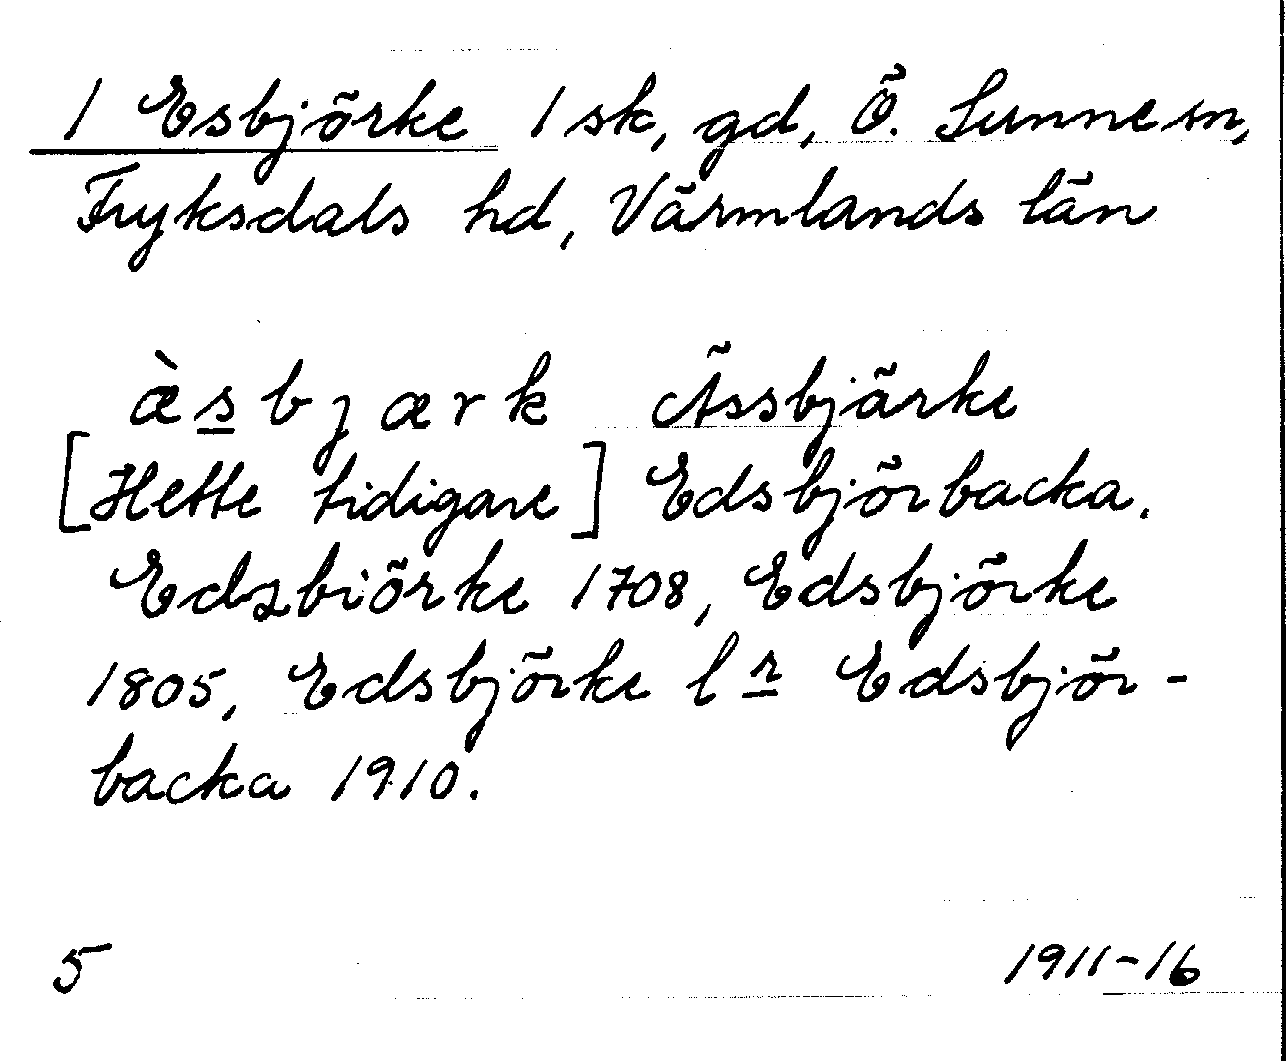 1 Esbjörke 1 sk, gd, Ö. Sunne sn,
Fryksdals hd, Värmlands län
æ̀sbjærk Ässbjärke
[Hette tidigare] Edsbjörbacka.
Edzbiörke 1708, Edsbjörke
1805, Edsbjörke l r Edsbjör-
backa 1910.
5 1911-16